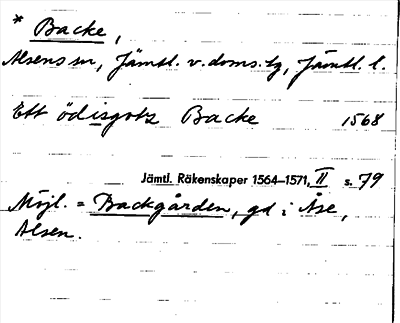 * Backe,
Alsens sn, Jämtl. v. doms. tg, Jämtl. l.
Ett ödisgotz Backe 1568
Jämtl. Räkenskaper 1564–1571, II s. 79
Möjl. = Backgården, gd i Åse,
Alsen.